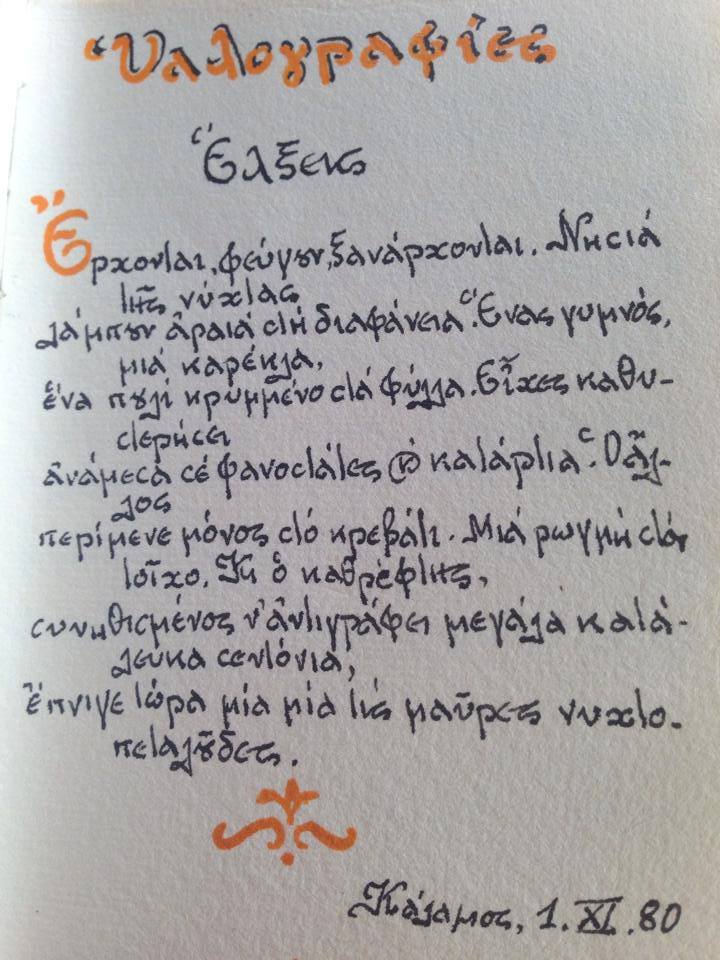 Ὑαλογραφίες
Ἕλξεις
Ἔρχονται, φεύγουν, ξανάρχονται. Νησιά
τῆς νύχτας
λάμπουν ἀραιά στή διαφάνεια. Ἕνας γυμνός,
μιά καρέκλα,
ἕνα πουλί κρυμμένο στά φύλλα. Εἶχες καθυ-
στερήσει
ἀνάμεσα σέ φανοστάτες καί κατάρτια. Ὁ ἄλ-
λος
περίμενε μόνος στό κρεβάτι. Μιά ρωγμή στόν
τοῖχο. Κι ὁ καθρέφτης,
συνηθισμένος ν' ἀντιγράφει μεγάλα κατά-
λευκα σεντόνια,
ἔπνιγε τώρα μία μία τίς μαῦρες νυχτο-
πεταλοῦδες.
Κάλαμος, 1.XI.80